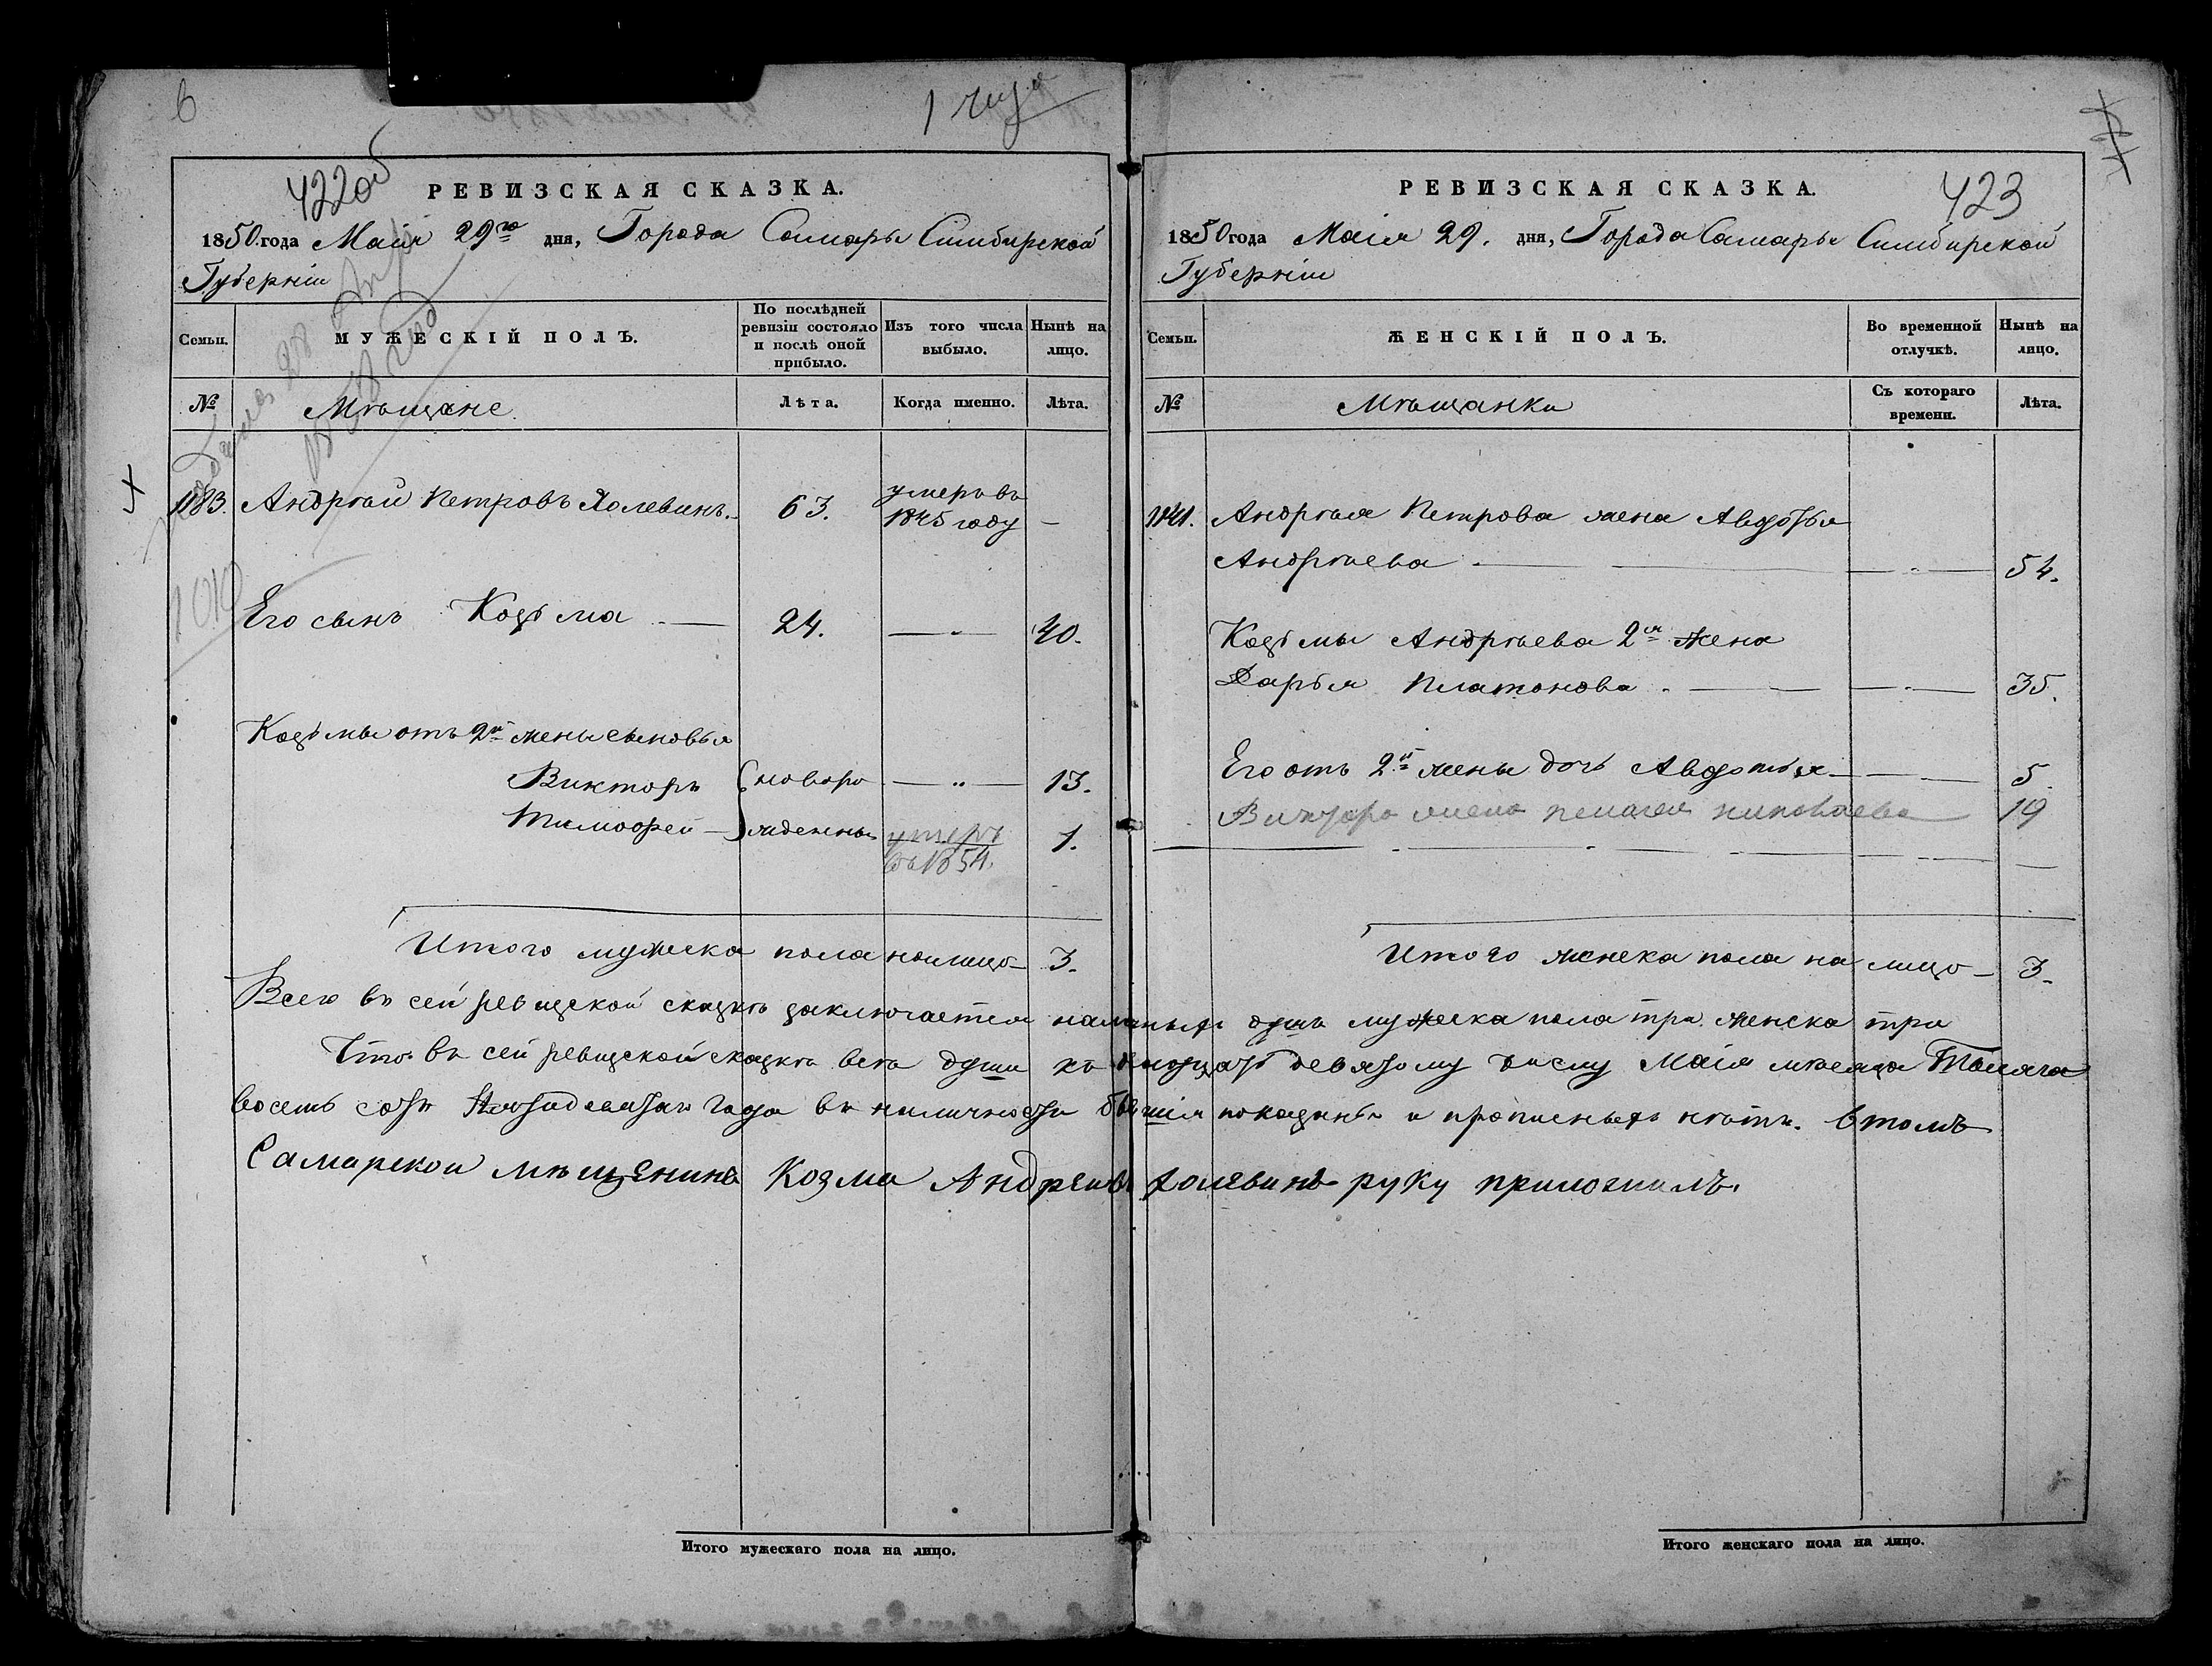 6
1 чуж
422об
РЕВИЗСКАЯ СКАЗКА.
1850 года Маия 29го дня, Города Самары Симбирской
Губерніи
Семьи. МУЖЕСКІЙ ПОЛЪ. По послѣдней ревизіи состояло и послѣ оной прибыло. Изъ того числа выбыло. Нынѣ на лицо.
№ Мѣщане. Лѣта. Когда именно. Лѣта.
Андрѣй Петровъ 63. умеръ въ 1845 году —
Его сынъ Козьма — 24. — " — 40.
Козьмы отъ 2й жены сыновья
Викторъ новоро — " — 13.
Тимоѳей — жденны умеръ въ 1854. 1.
Итого мужеска пола налицо — 3.
423
РЕВИЗСКАЯ СКАЗКА.
1850 года Маія 29. дня, Города Самары Симбирской
Губерніи
Семьи. ЖЕНСКІЙ ПОЛЪ. Во временной отлучкѣ. Нынѣ на лицо.
№ Мѣщанки Съ котораго времени. Лѣта.
Андрѣя Петрова жена Авдотья
Андрѣева — 54.
Козьмы Андрѣева 2я жена
Дарья Платонова — 35.
Его отъ 2й жены дочь Авдотья — 5.
Виктора жена Пелагея 19
Итого женска пола на лицо — 3.
Всего въ сей ревизской сказкѣ заключается наличныхъ душъ мужеска пола три. женска три
Что въ сей ревизской сказкѣ всѣ души къ двадцать девятому числу Маія мѣсяца Тысяча
восемь сотъ пятидесятаго года въ наличности бывшія показаны и прописныхъ нѣтъ. в томъ
Самарскои мѣщенинъ Козма Андреивъ руку приложилъ.
Итого мужескаго пола на лицо.
Итого женскаго пола на лицо.